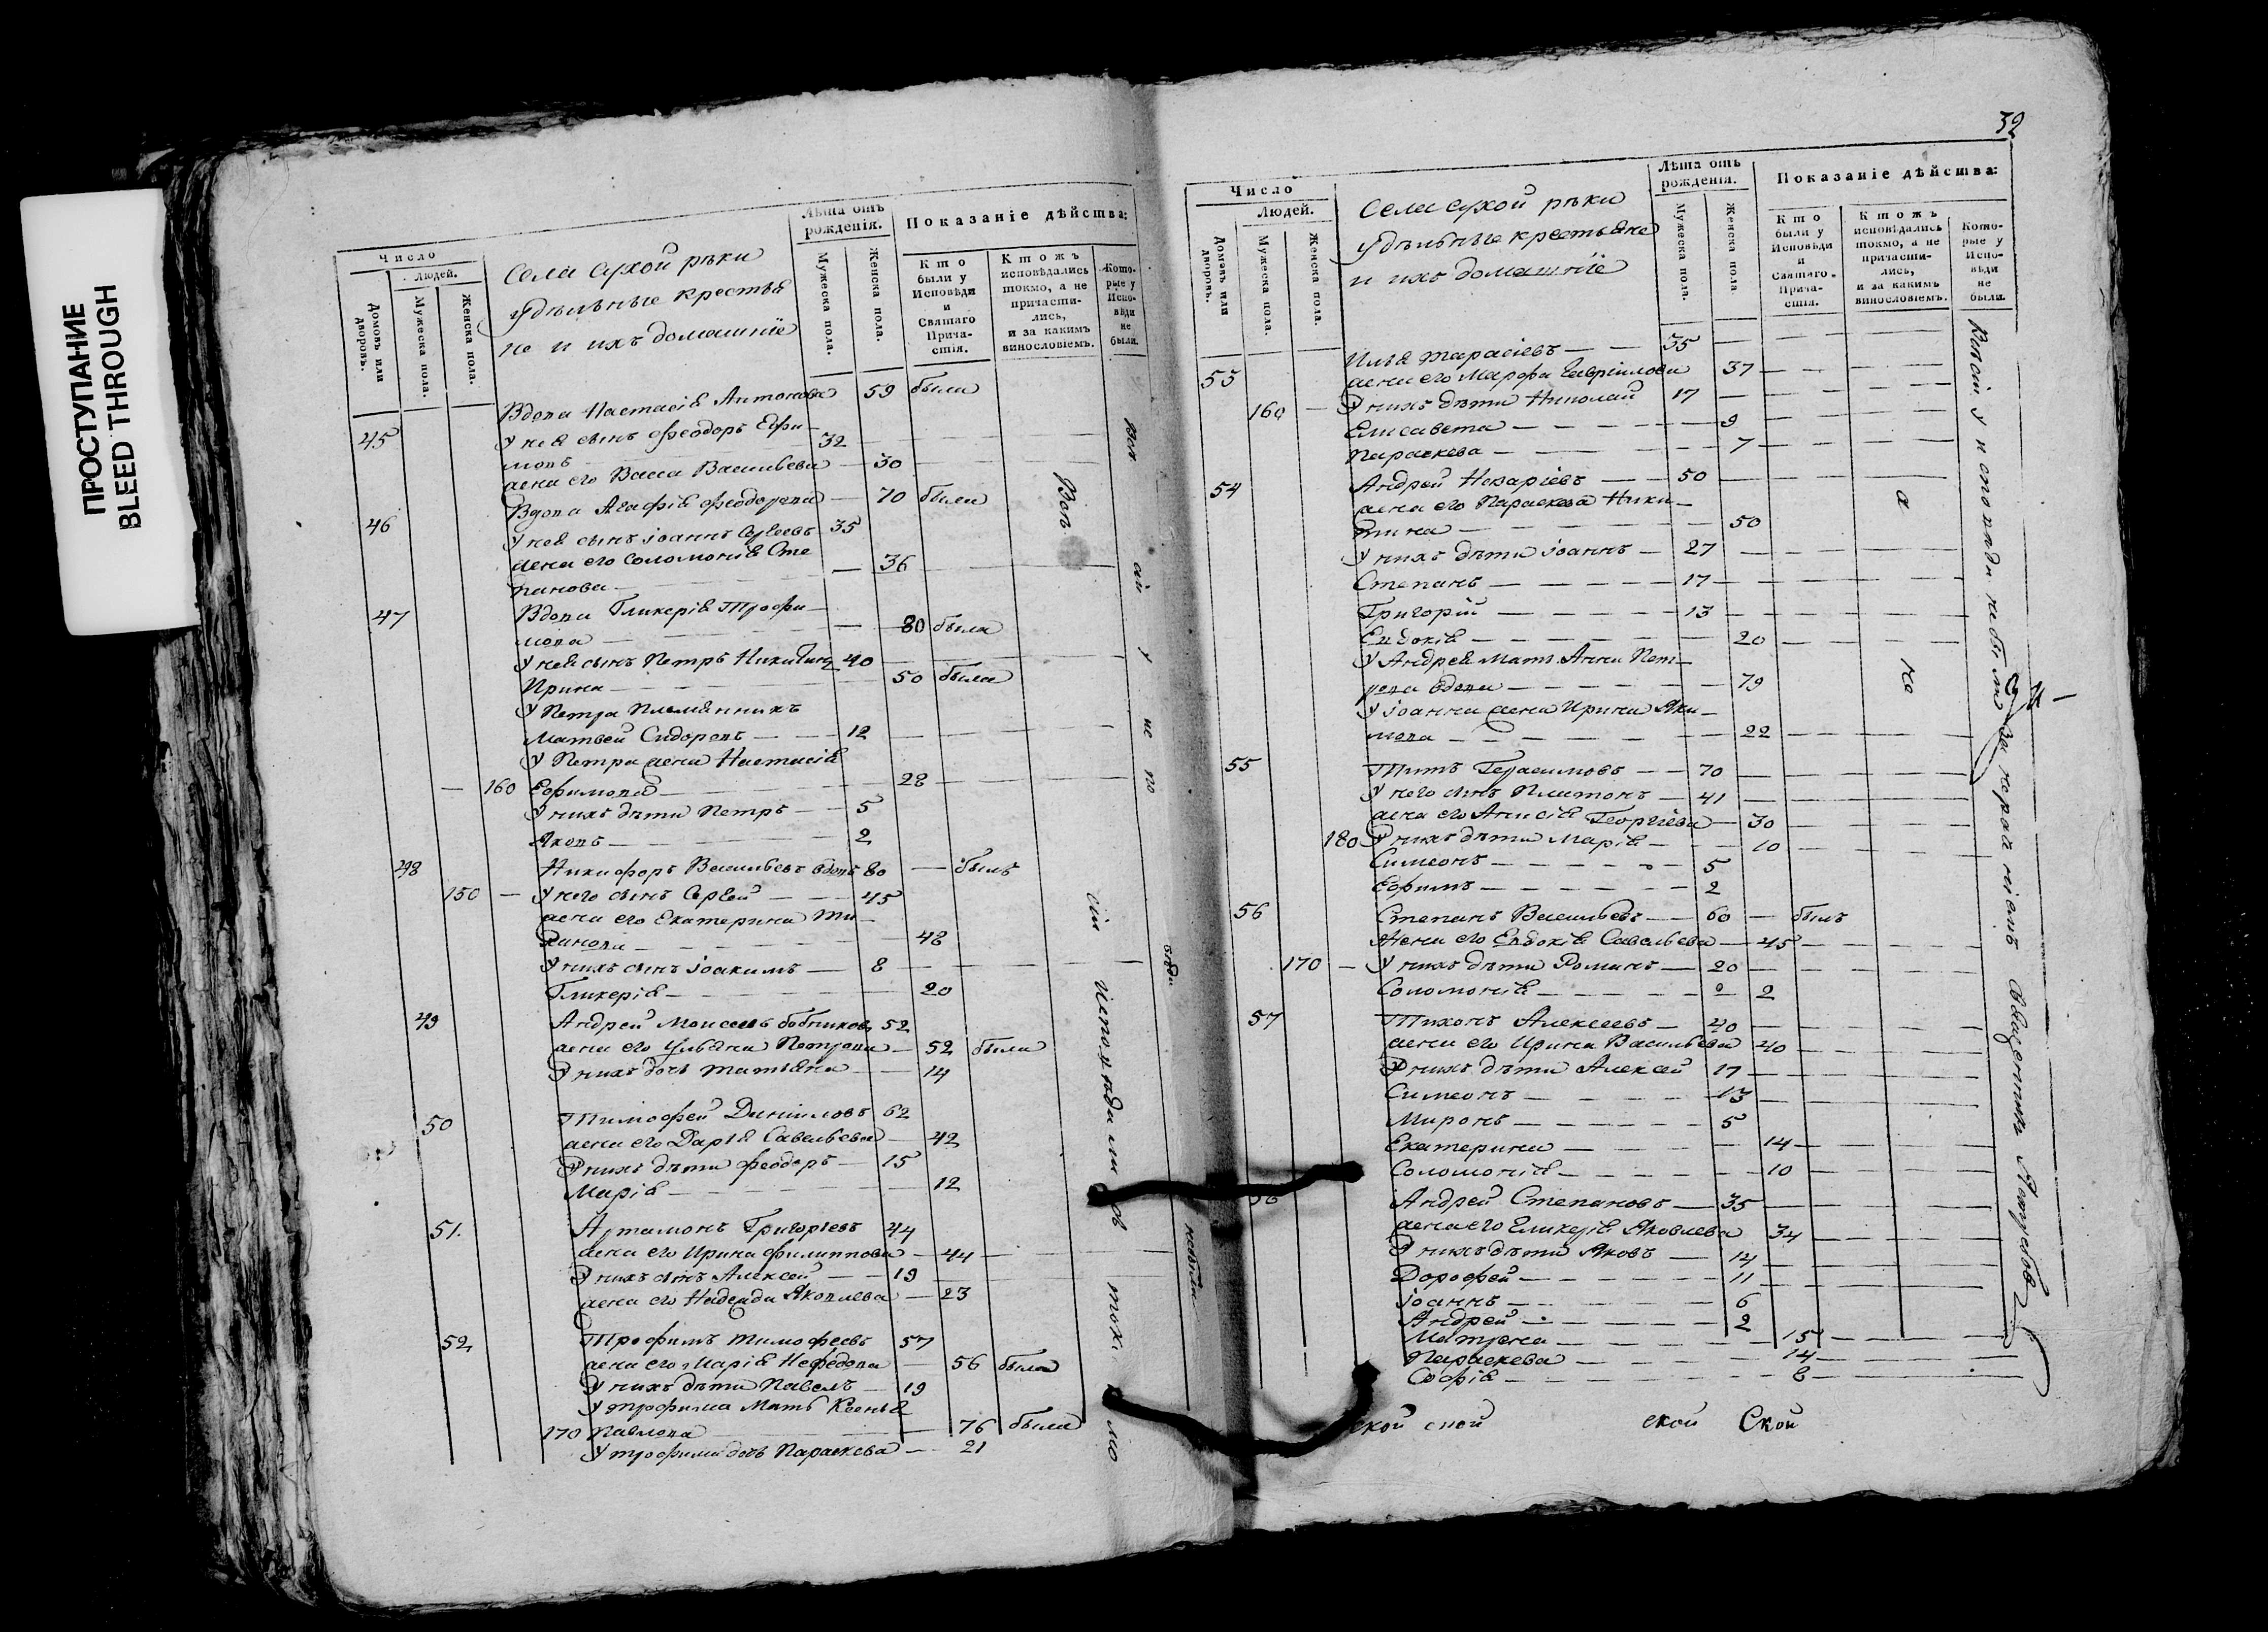 ПРОСТУПАНИЕ
BLEED THROUGH
Число
Людей.
Домовъ или дворовъ.
Мужеска пола.
Женска пола.
Села сухой рѣки
удѣльные крестья
не и ихъ домашніе
Лѣта отъ рожденія.
Мужеска пола.
Женска пола.
Показаніе дѣйства:
Кто были у Исповѣди и Святаго Прича-стія.
Ктожъ исповѣдались токмо, а не причасти-лись, и за какимъ винословіемъ.
Кото-рые у Испо-вѣди не были.
45 Вдова Настасія Антонова 59 была
У нея сынъ Феодоръ Ефи-
мовъ 32
жена его Васса Васильева 30
46 Вдова Агафія Феодорова 70 была
У нея сынъ Іоаннъ Сергеевъ 35
жена его Соломонія Сте
панова 36
47 Вдова Гликерія Трофи-
мова 80 была
У нея сынъ Петръ Никитинъ 40
Ирина 50 была
У Петра племянникъ
Матвей Сидоровъ 12
У Петра жена Настасія
160 Ефимова 28
У нихъ дѣти Петръ 5
Яковъ 2
48 Никифоръ Васильевъ вдовъ 80 былъ
150 У него сынъ Сергей 45
жена его Екатерина
48
У нихъ сынъ Іоакимъ 8
Гликерія 20
49 Андрей Моисеевъ бобыликовъ 52
жена его Ульяна Петрова 52 была
У нихъ дочь Татьяна 14
50 Тимофей Даниловъ 62
жена его Дарія Савельева 42
У нихъ дѣти Феодоръ 15
Марія 12
51. Артамонъ Григорьевъ 44
жена его Ирина Филиппова 44
У нихъ сынъ Алексей 19
жена его Надежда Яковлева 23
52 Трофимъ Тимофеевъ 57
жена его Марія Нефедова 56 была
У нихъ дѣти Павелъ 19
У Трофима мать Ксенья
170 Павлова 76 была
У Трофима дочь Параскева 21
32
Число
Людей.
Домовъ или дворовъ.
Мужеска пола.
Женска пола.
Села сухой рѣки
удѣльные крестьяне
и ихъ домашніе
Лѣта отъ рожденія.
Мужеска пола.
Женска пола
Показаніе дѣйства:
Кто были у Исповѣди и Святаго Прича-стія.
Ктожъ исповѣдались токмо, а не причасти-лись, и за какимъ винословіемъ.
Кото-рые у Испо-вѣди не были.
53 Илья Тарасіевъ 35
жена его Марфа Гавріилова 37
160 У нихъ дѣти Николай 17
Елисавета 9
Параскева 7
54 Андрей Назаріевъ 50
жена его Параскева Ники-
тина 50
У нихъ дѣти Іоаннъ 27
Степанъ 17
Григорій 13
Евдокія 20
У Андрея мать Анна Пет-
рова вдова 79
У Іоанна жена Ирина Яки-
мова 22
55 Титъ Герасимовъ 70
У него сынъ Платонъ 41
жена его Анисія Георгіева 30
180 У нихъ дѣти Марія 10
Симеонъ 5
Ефимъ 2
56 Степанъ Васильевъ 60 былъ
Жена его Евдокія Савельева 45
170 У нихъ дѣти Романъ 20
Соломонія 2
57 Тихонъ Алексеевъ 40
жена его Ирина Васильева 40
У нихъ дѣти Алексей 17
Симеонъ 13
Миронъ 5
Екатерина 14
Соломонія 10
58 Андрей Степановъ 35
жена его Гликерія Яковлева 34
У нихъ дѣти Яковъ 14
Дорофей 11
Іоаннъ 6
Андрей 2
Матрена 15
Параскева 14
Софія 8
ской ской ской Ской